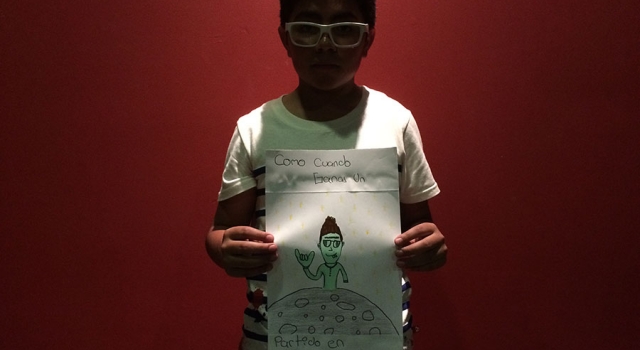 Como Cuando
Ganas Un
Partido en